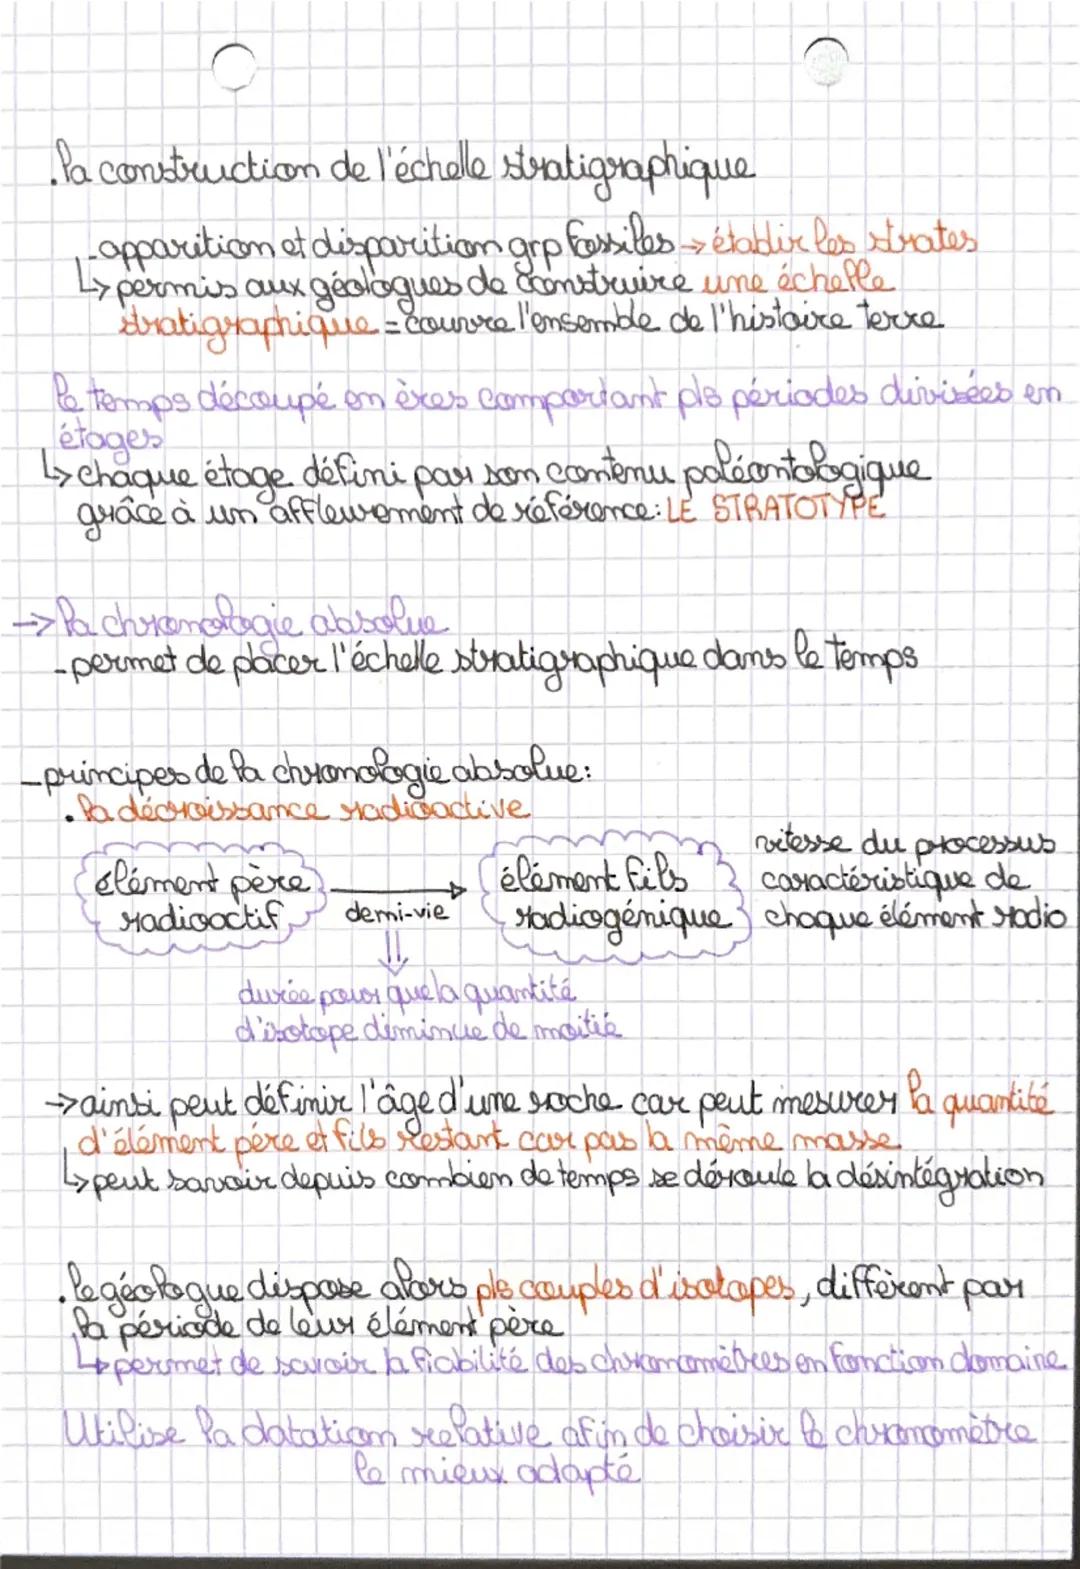 .la construction de l'échelle stratigraphique
-apparition et disparition grp fossiles → établir les strates
↳ permis aux géologues de construire une échelle
stratigraphique = couvre l'ensemble de l'histoire terre
le temps découpé en ères comportant pls périodes divisées en
étages
↳ chaque étage défini par son contenu paléontologique
grâce à un affleurement de référence: LE STRATOTYPE
→ la chronologie absolue
- permet de placer l'échelle stratigraphique dans le temps
- principes de la chronologie absolue:
. la décroissance radioactive
élément père
radioactif
demi-vie
élément fils
radiogénique
vitesse du processus
caractéristique de
chaque élément radio
durée pour que la quantité
d'isotope diminue de moitié
→ ainsi peut définir l'âge d'une roche car peut mesurer la quantité
d'élément père et fils restant car pas la même masse
↳ peut savoir depuis combien de temps se déroule la désintégration
. le géologue dispose alors pls couples d'isotopes, différent par
la période de leur élément père
↳ permet de savoir la fiabilité des chronomètres en fonction domaine
Utilise la datation relative afin de choisir le chronomètre
le mieux adapté